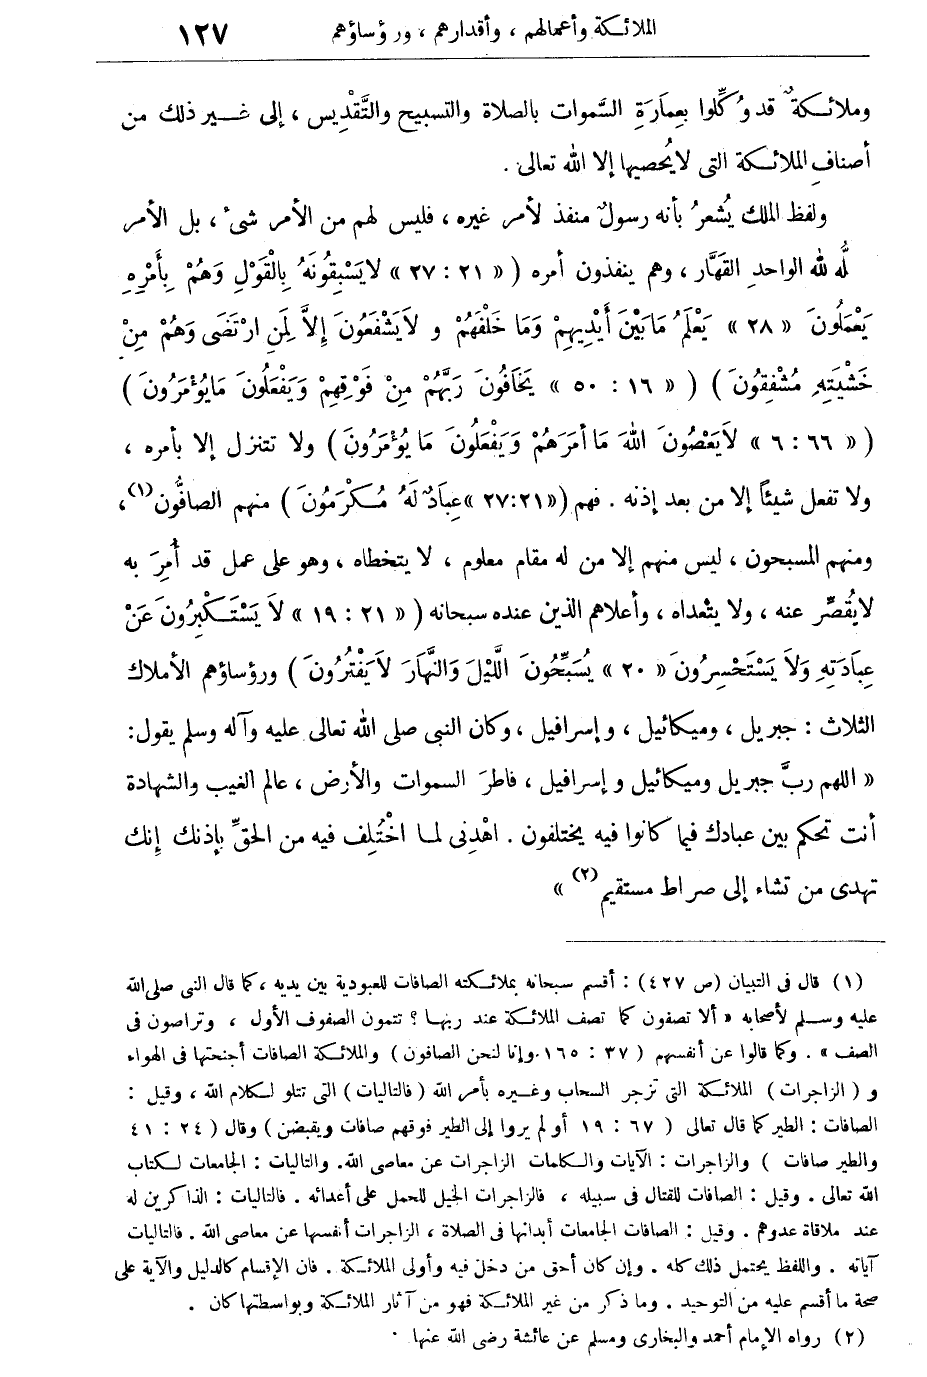 الملائكة وأعمالهم ، وأقدارهم ، ورؤساؤهم ١٢٧
وملائكةٌ قد وُكِّلوا بعِمَارَةِ السَّموات بالصلاة والتسبيح والتَّقْدِيس ، إلى غير ذلك من
أصنافِ الملائكة التى لا يُحصيها إلا الله تعالى .
ولفظ الملك يُشعرُ بأنه رسولٌ منفذ لأمر غيره ، فليس لهم من الأمر شىء ، بل الأمر
كلُّه لله الواحدِ القَهَّار ، وهم ينفذون أمره ( « ٢١ : ٢٧ » لاَ يَسْبِقُونَهُ بِالْقَوْلِ وَهُمْ بِأَمْرِهِ
يَعْمَلُونَ « ٢٨ » يَعْلَمُ مَا بَيْنَ أَيْدِيهِمْ وَمَا خَلْفَهُمْ وَلاَ يَشْفَعُونَ إِلاَّ لِمَنِ ارْتَضَى وَهُمْ مِنْ
خَشْيَتِهِ مُشْفِقُونَ ) ( « ١٦ : ٥٠ » يَخَافُونَ رَبَّهُمْ مِنْ فَوْقِهِمْ وَيَفْعَلُونَ مَا يُؤْمَرُونَ )
( « ٦٦ : ٦ » لاَ يَعْصُونَ اللهَ مَا أَمَرَهُمْ وَيَفْعَلُونَ مَا يُؤْمَرُونَ ) ولا تتنزل إلا بأمره ،
ولا تفعل شيئاً إلا من بعد إذنه . فهم ( « ٢٧:٢١ » عِبَادٌ لَهُ مُكْرَمُونَ ) منهم الصافُّون (١) ،
ومنهم المسبحون ، ليس منهم إلا من له مقام معلوم ، لا يتخطاه ، وهو على عمل قد أُمِرَ به
لا يُقصِّر عنه ، ولا يتعداه ، وأعلاهم الذين عنده سبحانه ( « ٢١ : ١٩ » لاَ يَسْتَكْبِرُونَ عَنْ
عِبَادَتِهِ وَلاَ يَسْتَحْسِرُونَ « ٢٠ » يُسَبِّحُونَ اللَّيْلَ وَالنَّهَارَ لاَ يَفْتُرُونَ ) ورؤساؤهم الأملاك
الثلاث : جبريل ، وميكائيل ، وإسرافيل ، وكان النبى صلى الله تعالى عليه وآله وسلم يقول :
« اللهم ربَّ جبريل وميكائيل وإسرافيل ، فاطرَ السموات والأرض ، عالم الغيب والشهادة
أنت تحكم بين عبادك فيما كانوا فيه يختلفون . اهْدِنى لما اخْتُلِف فيه من الحقِّ بإذنك إنك
تهدى من تشاء إلى صراط مستقيم (٢) »
(١) قال فى التبيان (ص ٤٢٧) : أقسم سبحانه بملائكته الصافات للعبودية بين يديه ، كما قال النبى صلى الله
عليه وسلم لأصحابه « ألا تصفون كما تصف الملائكة عند ربها ؟ تتمون الصفوف الأول ، وتراصون فى
الصف » . وكما قالوا عن أنفسهم ( ٣٧ : ١٦٥ وإنا لنحن الصافون ) والملائكة الصافات أجنحتها فى الهواء
و ( الزاجرات ) الملائكة التى تزجر السحاب وغيره بأمر الله ( فالتاليات ) التى تتلو لكلام الله ، وقيل :
الصافات : الطير كما قال تعالى ( ٦٧ : ١٩ أو لم يروا إلى الطير فوقهم صافات ويقبضن ) وقال ( ٢٤ : ٤١
والطير صافات ) والزاجرات : الآيات والكلمات الزاجرات عن معاصى الله. والتاليات : الجامعات لكتاب
الله تعالى . وقيل : الصافات للقتال فى سبيله ، فالزاجرات الخيل للحمل على أعدائه . فالتاليات : الذاكرين له
عند ملاقاة عدوهم . وقيل : الصافات الجامعات أبدانها فى الصلاة ، الزاجرات أنفسها عن معاصى الله . فالتاليات
آياته . واللفظ يحتمل ذلك كله . وإن كان أحق من دخل فيه وأولى الملائكة . فان الإقسام كالدليل والآية على
صحة ما أقسم عليه من التوحيد . وما ذكر من غير الملائكة فهو من آثار الملائكة وبواسطتها كان .
(٢) رواه الإمام أحمد والبخارى ومسلم عن عائشة رضى الله عنها .